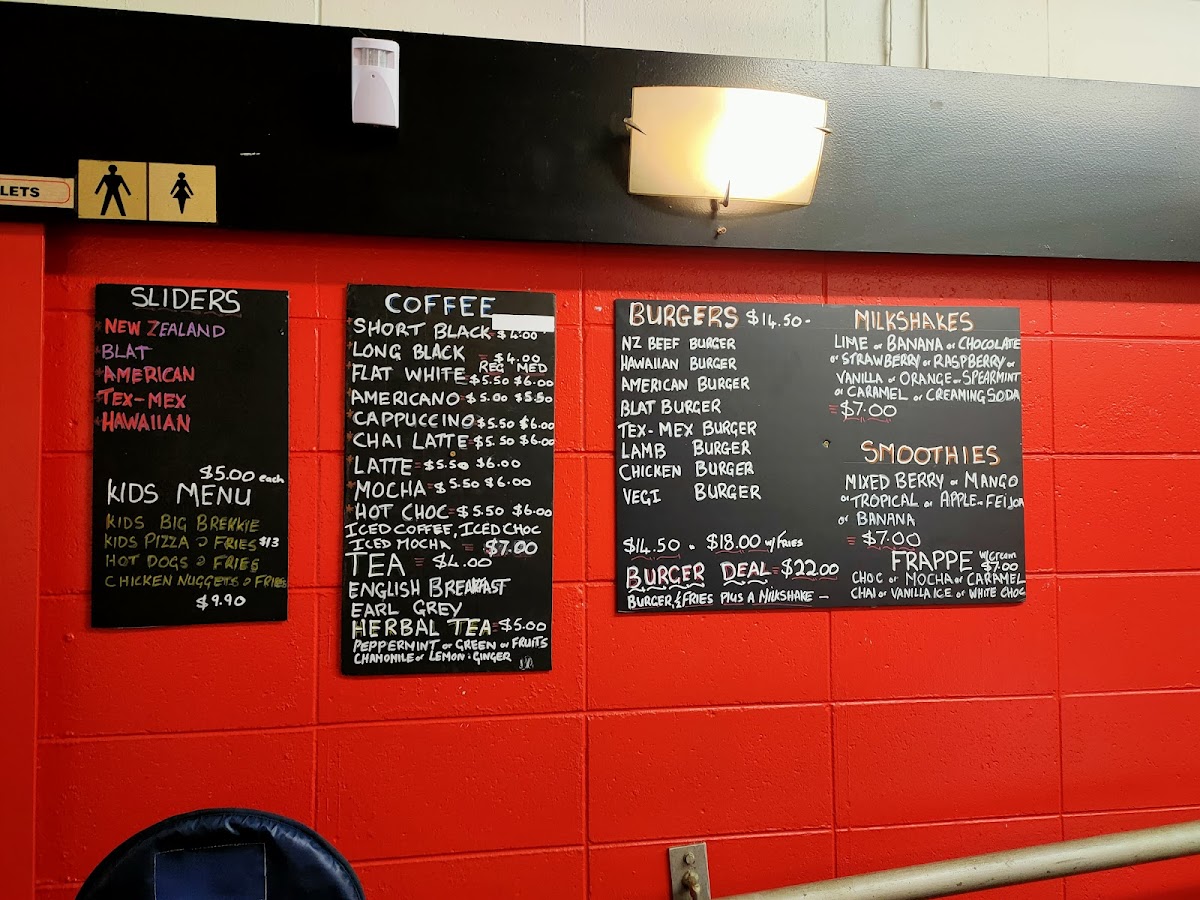 LETS
SLIDERS
NEW ZEALAND
BLAT
AMERICAN
TEX-MEX
HAWAIIAN
$5.00 each
KIDS MENU
KIDS BIG BREKKIE
KIDS PIZZA & FRIES $13
HOT DOGS & FRIES
CHICKEN NUGGETS & FRIES
$9.90
COFFEE
SHORT BLACK = $4.00
LONG BLACK = $4.00
REG MED
FLAT WHITE = $5.50 $6.00
AMERICANO = $5.00 $5.50
CAPPUCCINO $5.50 $6.00
CHAI LATTE = $5.50 $6.00
LATTE = $5.50 $6.00
MOCHA = $5.50 $6.00
HOT CHOC = $5.50 $6.00
ICED COFFEE, ICED CHOC
ICED MOCHA = $7.00
TEA = $4.00
ENGLISH BREAKFAST
EARL GREY
HERBAL TEA = $5.00
PEPPERMINT or GREEN or FRUITS
CHAMOMILE or LEMON : GINGER
BURGERS $14.50-
NZ BEEF BURGER
HAWAIIAN BURGER
AMERICAN BURGER
BLAT BURGER
TEX-MEX BURGER
LAMB BURGER
CHICKEN BURGER
VEGI BURGER
$14.50 - $18.00 w/ FRIES
BURGER DEAL = $22.00
BURGER, & FRIES PLUS A MILKSHAKE -
MILKSHAKES
LIME or BANANA or CHOCOLATE
or STRAWBERRY or RASPBERRY or
VANILLA or ORANGE or SPEARMINT
or CARAMEL or CREAMING SODA
= $7.00
SMOOTHIES
MIXED BERRY or MANGO
or TROPICAL or APPLE-FEIJOA
or BANANA
= $7.00
FRAPPE w/ Cream $7.00
CHOC or MOCHA or CARAMEL
CHAI or VANILLA ICE or WHITE CHOC